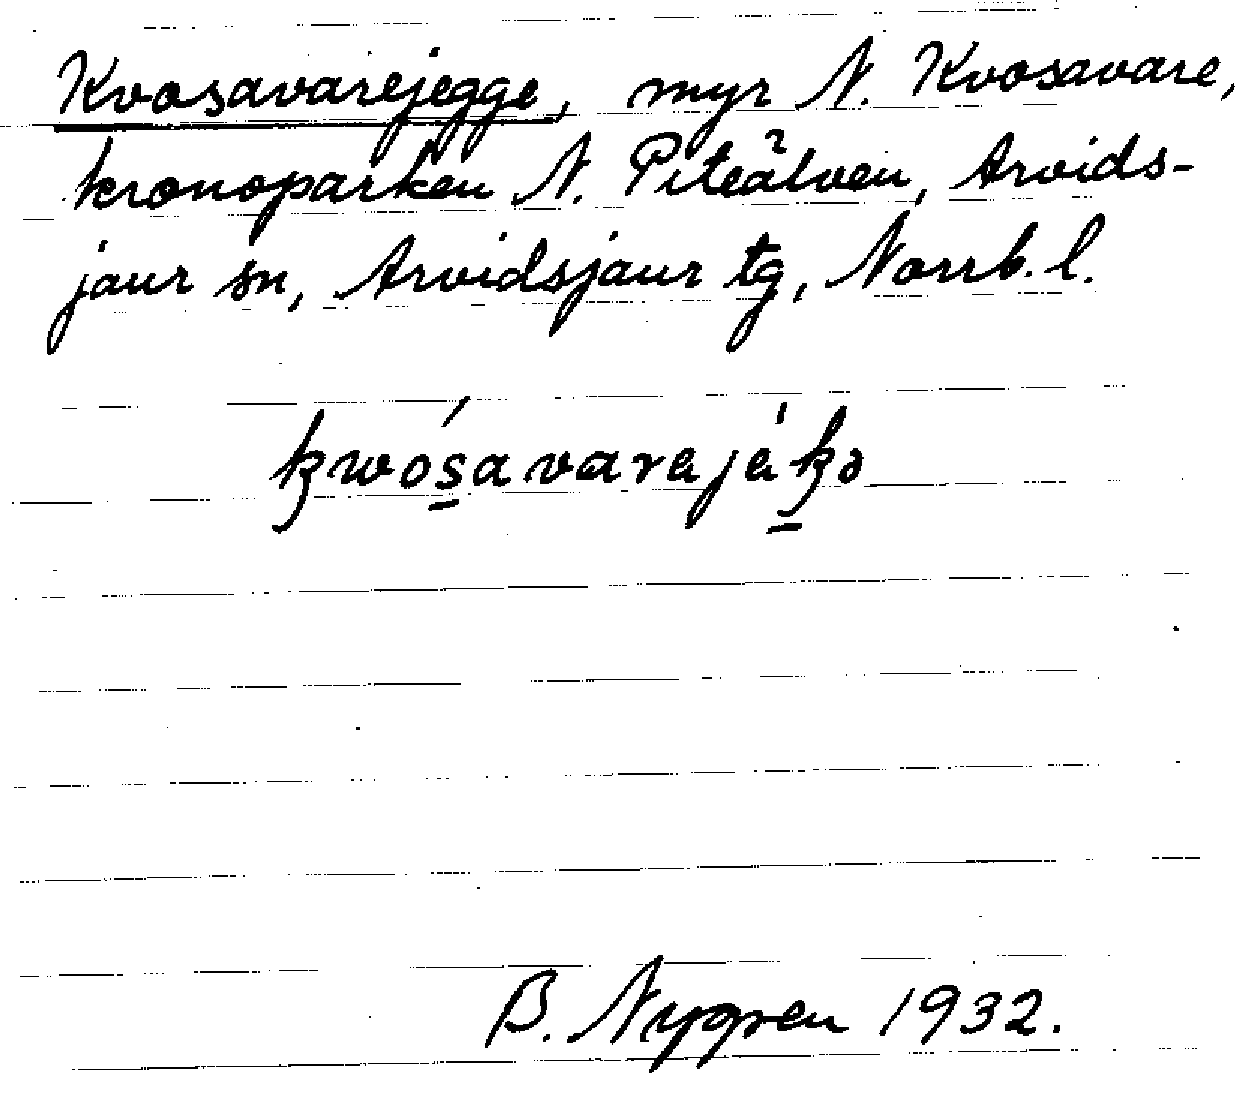 Kvosavarejegge, myr N. Kvosavare,
kronoparken N. Piteälven, Arvids-
jaur sn, Arvidsjaur tg, Norrb. l.
B. Nygren 1932.